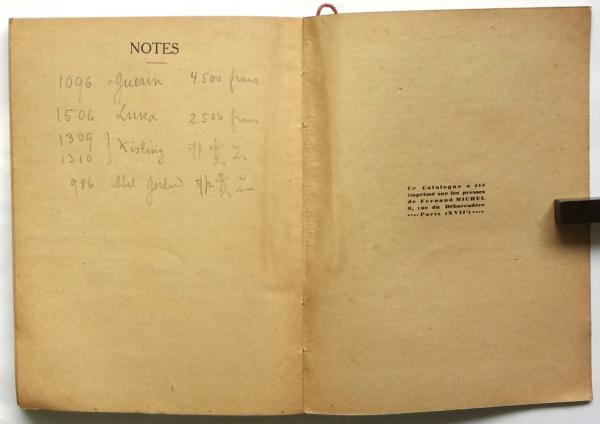 NOTES
1096 - Guerin 4.500 francs
1506 Luka 2.500 francs
1309
1310 } Kisling 非賣品
986 Abel 非賣品
Ce Catalogue a été
imprimé sur les presses
de Fernand MICHEL
8, rue du Débarcadère
•••• Paris (XVIIᵉ) ••••